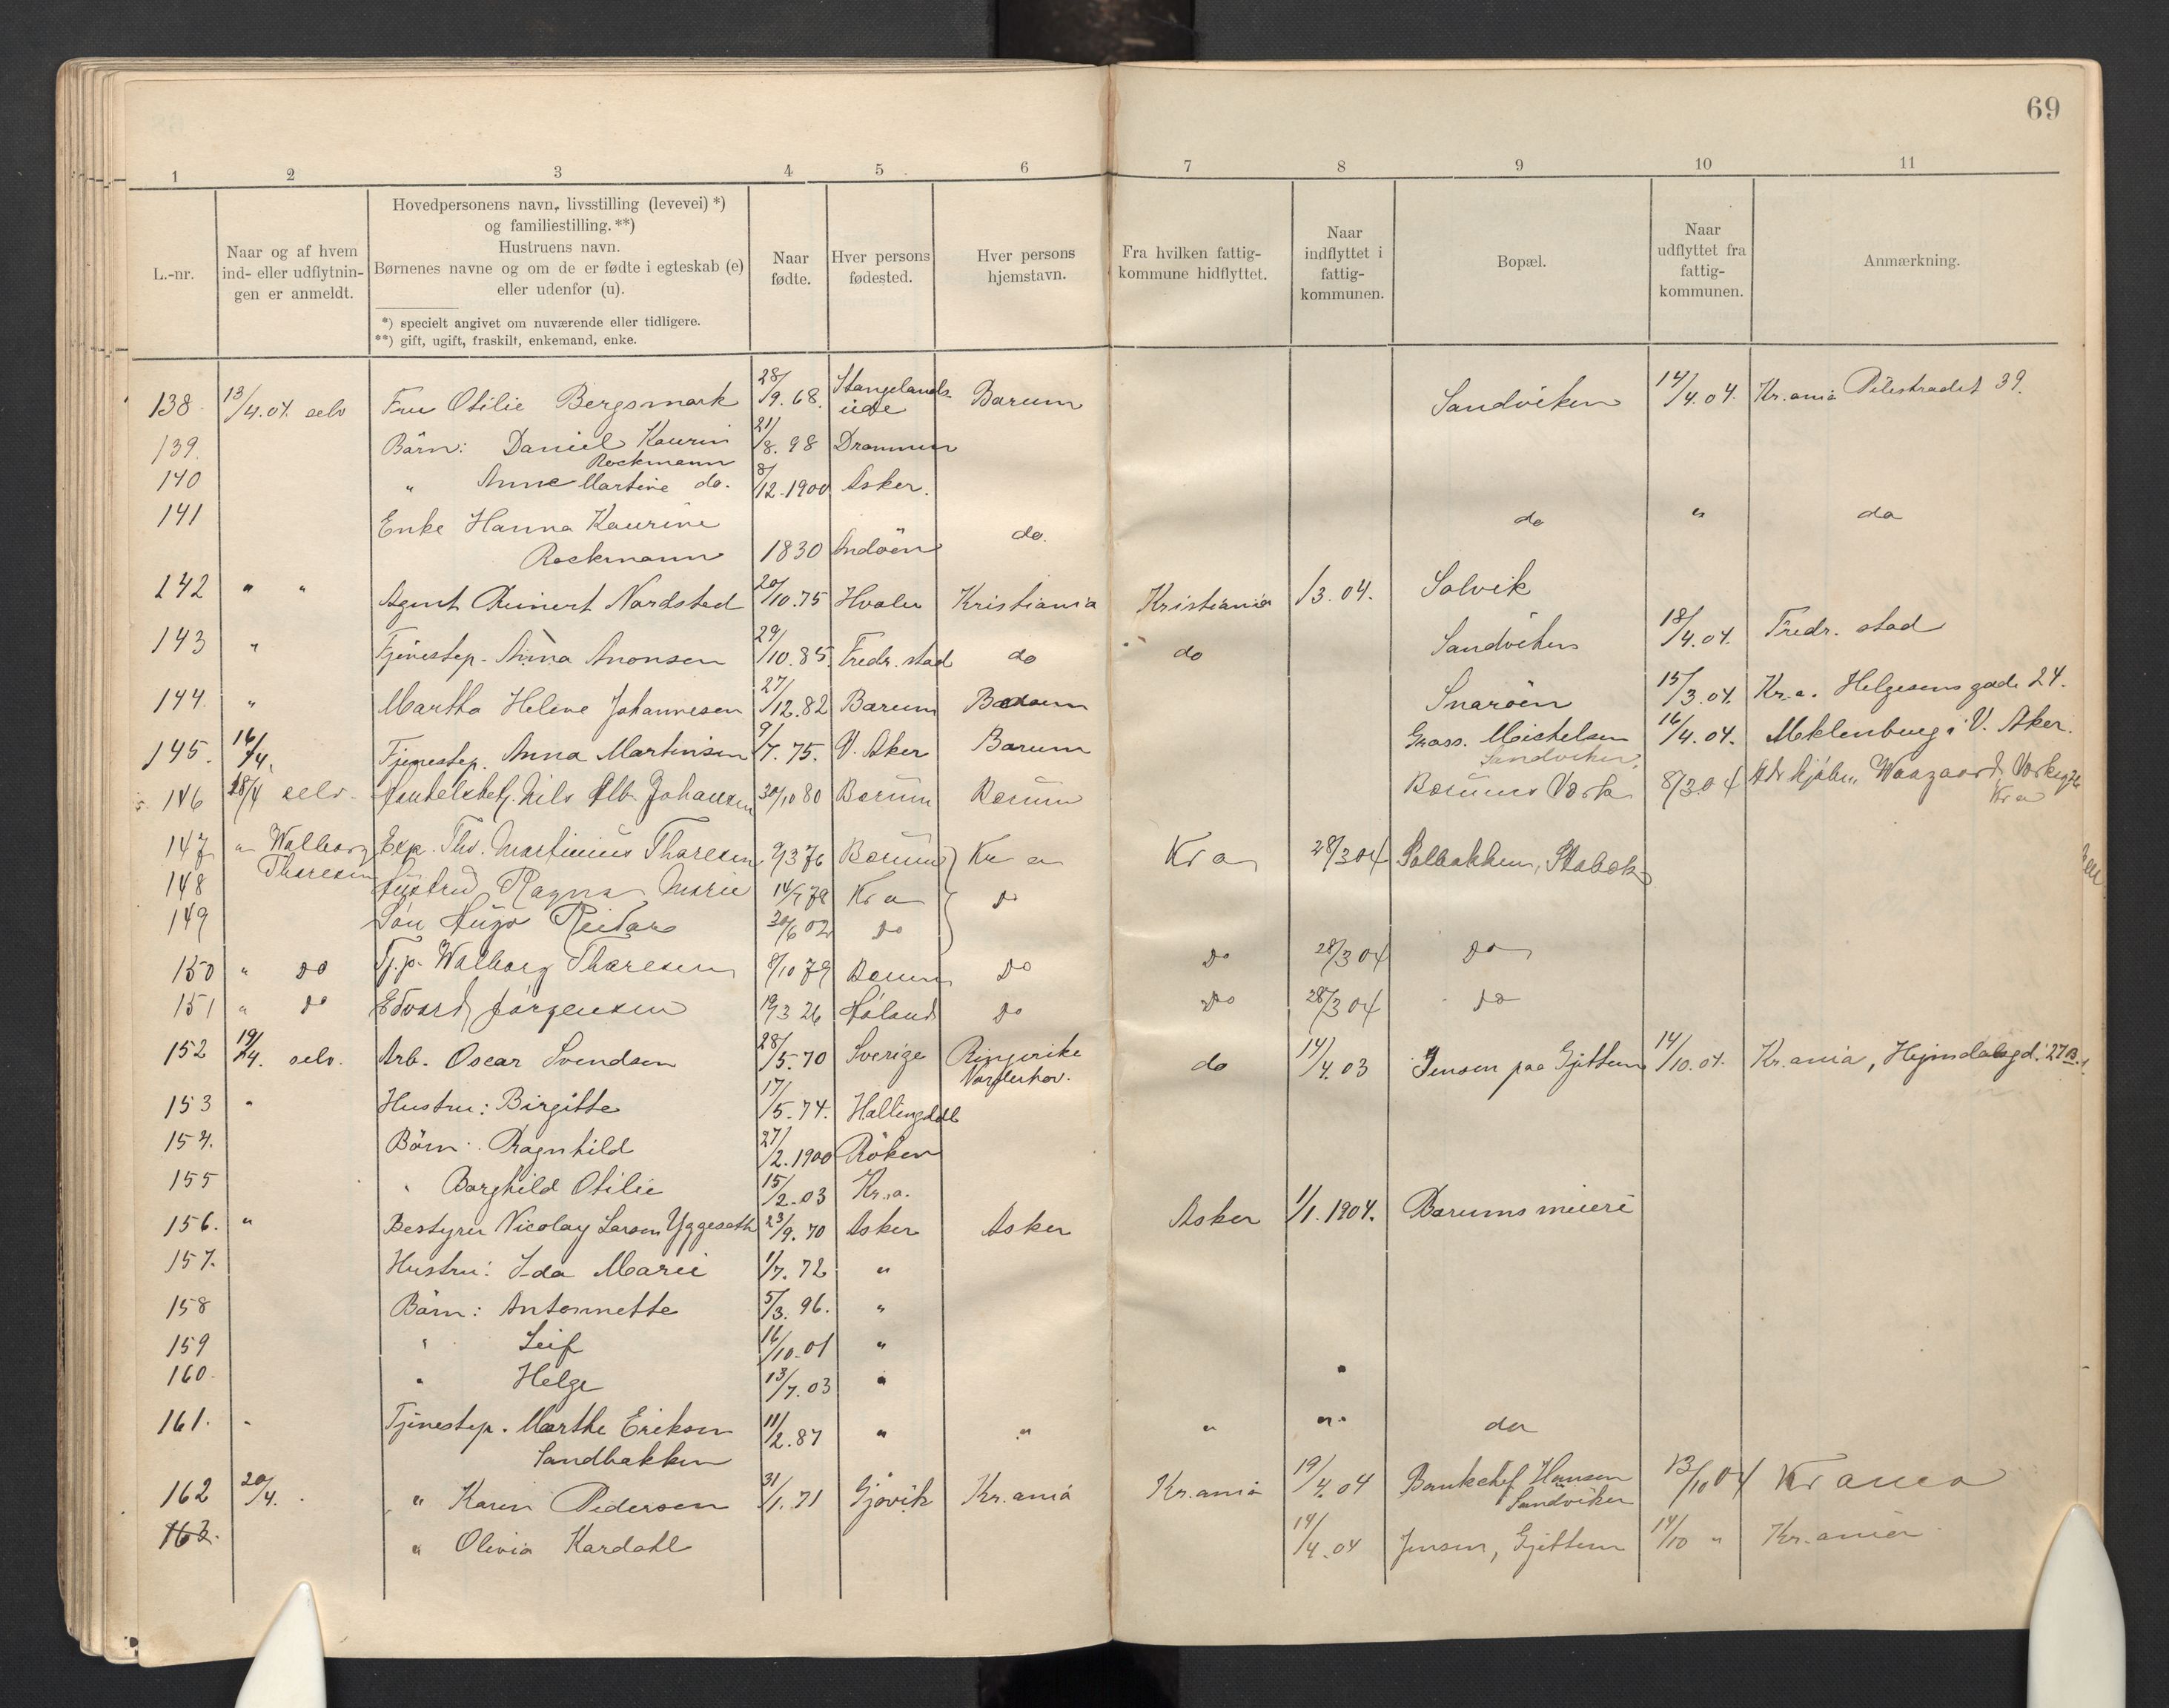 69
1 2 3 4 5 6 7 8 9 10 11
L.-nr.
Naar og af hvem
ind- eller udflytnin-
gen er anmeldt.
Hovedpersonens navn, livsstilling (levevei) *)
og familiestilling. **)
Hustruens navn.
Børnenes navne og om de er fødte i egteskab (e)
eller udenfor (u).
*) specielt angivet om nuværende eller tidligere.
**) gift, ugift, fraskilt, enkemand, enke.
Naar
fødte.
Hver persons
fødested.
Hver persons
hjemstavn.
Fra hvilken fattig-
kommune hidflyttet.
Naar
indflyttet i
fattig-
kommunen.
Bopæl.
Naar
udflyttet fra
fattig-
kommunen.
Anmærkning.
138 13/4.04. selv Fru Otilie Bergsmark 28/9.68. Stangelands- Bærum Sandviken 14/4.04. Kr.ania Pilestrædet 39.
139. Børn: Daniel Kaurin 21/8.98 Drammen
Rockmann
140 " Anne Martine do. 8/12.1900 Asker.
141 Enke Hanna Kaurine do " do
Rockmann 1830 Andøen do.
142 " " Agent Reinert Nordsted 20/10.75 Hvaler Kristiania Kristiania /3.04. Solvik
143 " Tjenestep. Anna Aronsen 29/10.85. Fredr.stad do do Sandviken 18/4.04. Fredr.stad
144. " Martha Helene Johannesen 27/12.82 Bærum Bærum Snarøen 15/3.04. Kr.a. Helgesens gade 24.
145. 16/4. Tjenestep. Anna Martinsen 9/7.75. V. Aker Bærum Gross. Meistelsen 16/4.04. Meklenburg i V. Aker.
Sandviken.
146 28/4 selv. Handelsbetj. Nils Alb. Johansen 30/10 80 Bærum Bærum Bærums Værk 8/3 04
Kra
147 " Walborg Exp. Thv. Martinius Thoresen 9/3 76 Bærum Kra Kra 28/3 04 Solbakken, Stabæk
Thoresen
148 Hustru Ragna Marie 14/7 79 Kra do
149 Søn Hugo Reidar 30/6 02 do
150 " do Tj.p. Walborg Thoresen 8/10 79 Bærum do do 28/3 04 do
151 " do Edvard Jørgensen 19/3 26 Høland do do 28/3 04 do
152 19/4. selv. Arb. Oscar Svendsen 28/5.70 Sverige Ringerike do 14/4.03 Jensen paa Gjettum 14/10.04. Kr.ania, Hejmdalsgd. 27 B.
Norderhov.
153 " Hustru: Birgitte 17/5.74. Hallingdal
154. Børn: Ragnhild 27/2.1900 Røken
155 " Borghild Otilie 15/2.03 Kr.a.
156. " Bestyrer Nicolay Larsen Yggeseth 23/9.70 Asker Asker Asker 1/1.1904. Bærums meieri
157. Hustru: Ida Marie 1/7.72 "
158 Børn: Antonnette 5/3.96. "
159 " Leif 16/10.01 "
160. " Helge 13/7.03 " "
161. " Tjenestep. Marthe Eriksen 11/2.87 " " " " " do
Sandbakken
162 20/4. " Karen Pedersen 31/1.71 Gjøvik Kr.ania Kr.ania 19/4.04 Bankchef Hansen 13/10 04 Krania
Sandviken
163. " Olivia Kardahl 14/4.04 Jensen, Gjettum 14/10 " Kr.ania